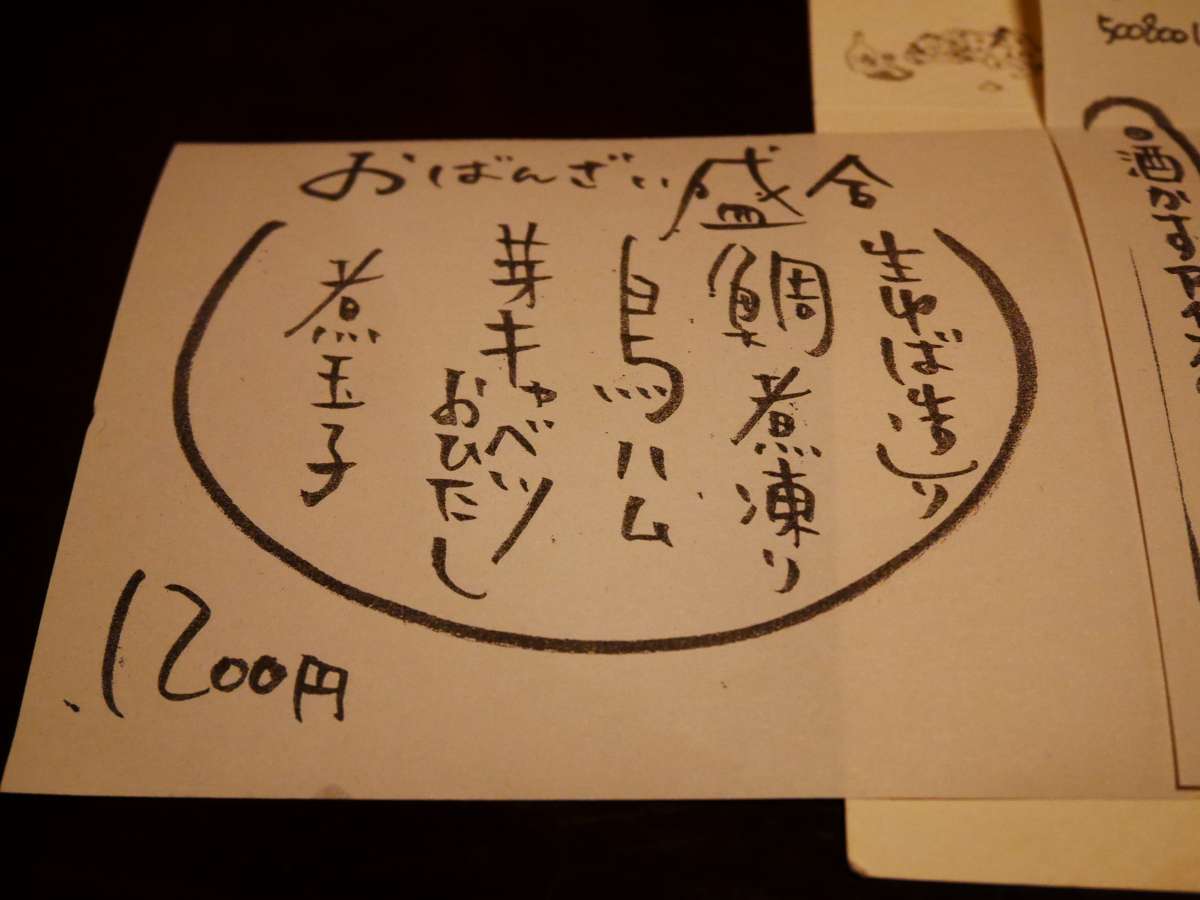 おばんざい盛合
生ゆば造り
鯛煮凍り
鳥ハム
芽キャベツ
おひたし
煮玉子
1200円
500800
酒かす